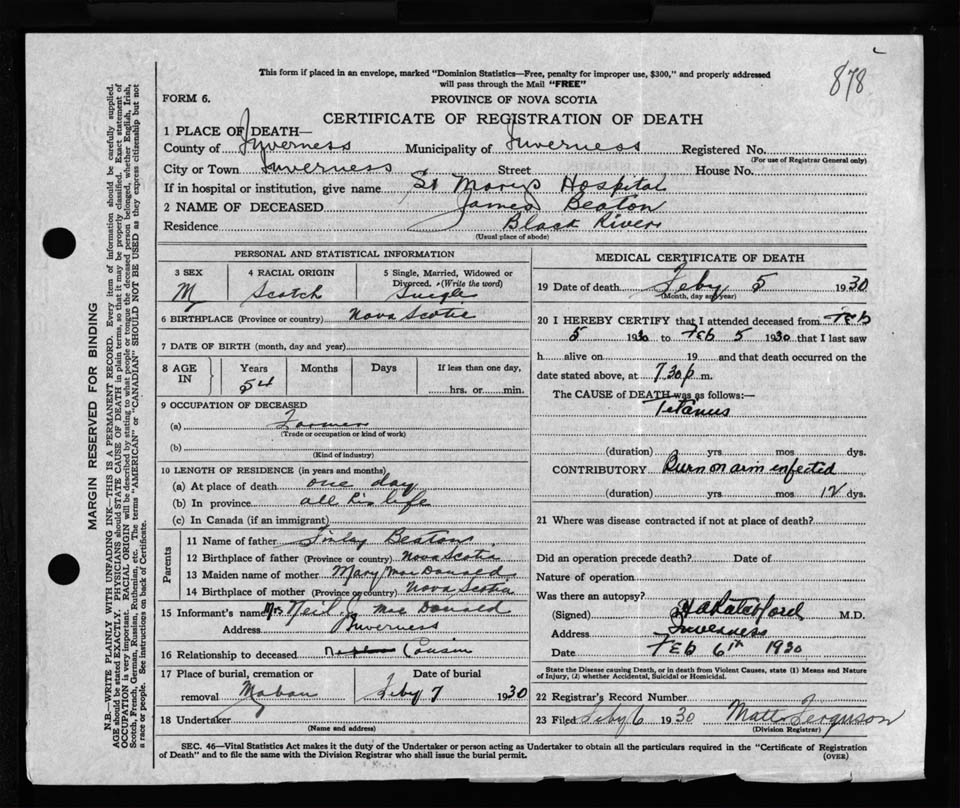 878
This form if placed in an envelope, marked "Dominion Statistics—Free, penalty for improper use, $300," and properly addressed
will pass through the Mail "FREE"
FORM 6.
PROVINCE OF NOVA SCOTIA
CERTIFICATE OF REGISTRATION OF DEATH
1 PLACE OF DEATH—
County of Inverness Municipality of Inverness Registered No.
(For use of Registrar General only)
City or Town Inverness Street House No.
If in hospital or institution, give name St Marys Hospital
2 NAME OF DECEASED James Beaton
Residence Black River
(Usual place of abode)
PERSONAL AND STATISTICAL INFORMATION
3 SEX 4 RACIAL ORIGIN 5 Single, Married, Widowed or
Divorced. (Write the word)
M Scotch Single
6 BIRTHPLACE (Province or country) Nova Scotia
7 DATE OF BIRTH (month, day and year)
8 AGE IN Years Months Days If less than one day,
54 hrs. or min.
9 OCCUPATION OF DECEASED
(a) Farmer
(Trade or occupation or kind of work)
(b)
(Kind of industry)
10 LENGTH OF RESIDENCE (in years and months)
(a) At place of death one day
(b) In province all his life
(c) In Canada (if an immigrant)
Parents
11 Name of father Finlay Beaton
12 Birthplace of father (Province or country) Nova Scotia
13 Maiden name of mother Mary MacDonald
14 Birthplace of mother (Province or country) Nova Scotia
15 Informant's name Mrs Neil J Mac Donald
Address Inverness
16 Relationship to deceased Cousin
17 Place of burial, cremation or Date of burial
removal Mabou Feby 7 1930
18 Undertaker
(Name and address)
MEDICAL CERTIFICATE OF DEATH
19 Date of death Feby 5 1930
(Month, day and year)
20 I HEREBY CERTIFY that I attended deceased from Feb
5 1930 to Feb 5 1930 that I last saw
h alive on 19 and that death occurred on the
date stated above, at 7.30 p m.
The CAUSE of DEATH was as follows:
Tetanus
(duration) yrs. mos. dys.
CONTRIBUTORY Burn on arm infected
(duration) yrs. mos. 12 dys.
21 Where was disease contracted if not at place of death?
Did an operation precede death? Date of
Nature of operation
Was there an autopsy?
(Signed) M.D.
Address Inverness
Date Feb 6th 1930
State the Disease causing Death, or in death from Violent Causes, state (1) Means and Nature
of Injury, (2) whether Accidental, Suicidal or Homicidal.
22 Registrar's Record Number
23 Filed Feby 6 1930 Matt Ferguson
(Division Registrar)
SEC. 46—Vital Statistics Act makes it the duty of the Undertaker or person acting as Undertaker to obtain all the particulars required in the "Certificate of Registration
of Death" and to file the same with the Division Registrar who shall issue the burial permit.
(OVER)
MARGIN RESERVED FOR BINDING
N.B.—WRITE PLAINLY WITH UNFADING INK—THIS IS A PERMANENT RECORD. Every item of information should be carefully supplied.
AGE should be stated EXACTLY. PHYSICIANS should STATE CAUSE OF DEATH in plain terms, so that it may be properly classified. Exact statement of
OCCUPATION is very important. RACIAL ORIGIN will be described by stating to what people or tongue the deceased person belonged, whether English, Irish,
Scotch, French, German, Russian, Ruthenian, etc. The terms "AMERICAN" or "CANADIAN" SHOULD NOT BE USED as they express citizenship but not
a race or people. See instructions on back of Certificate.